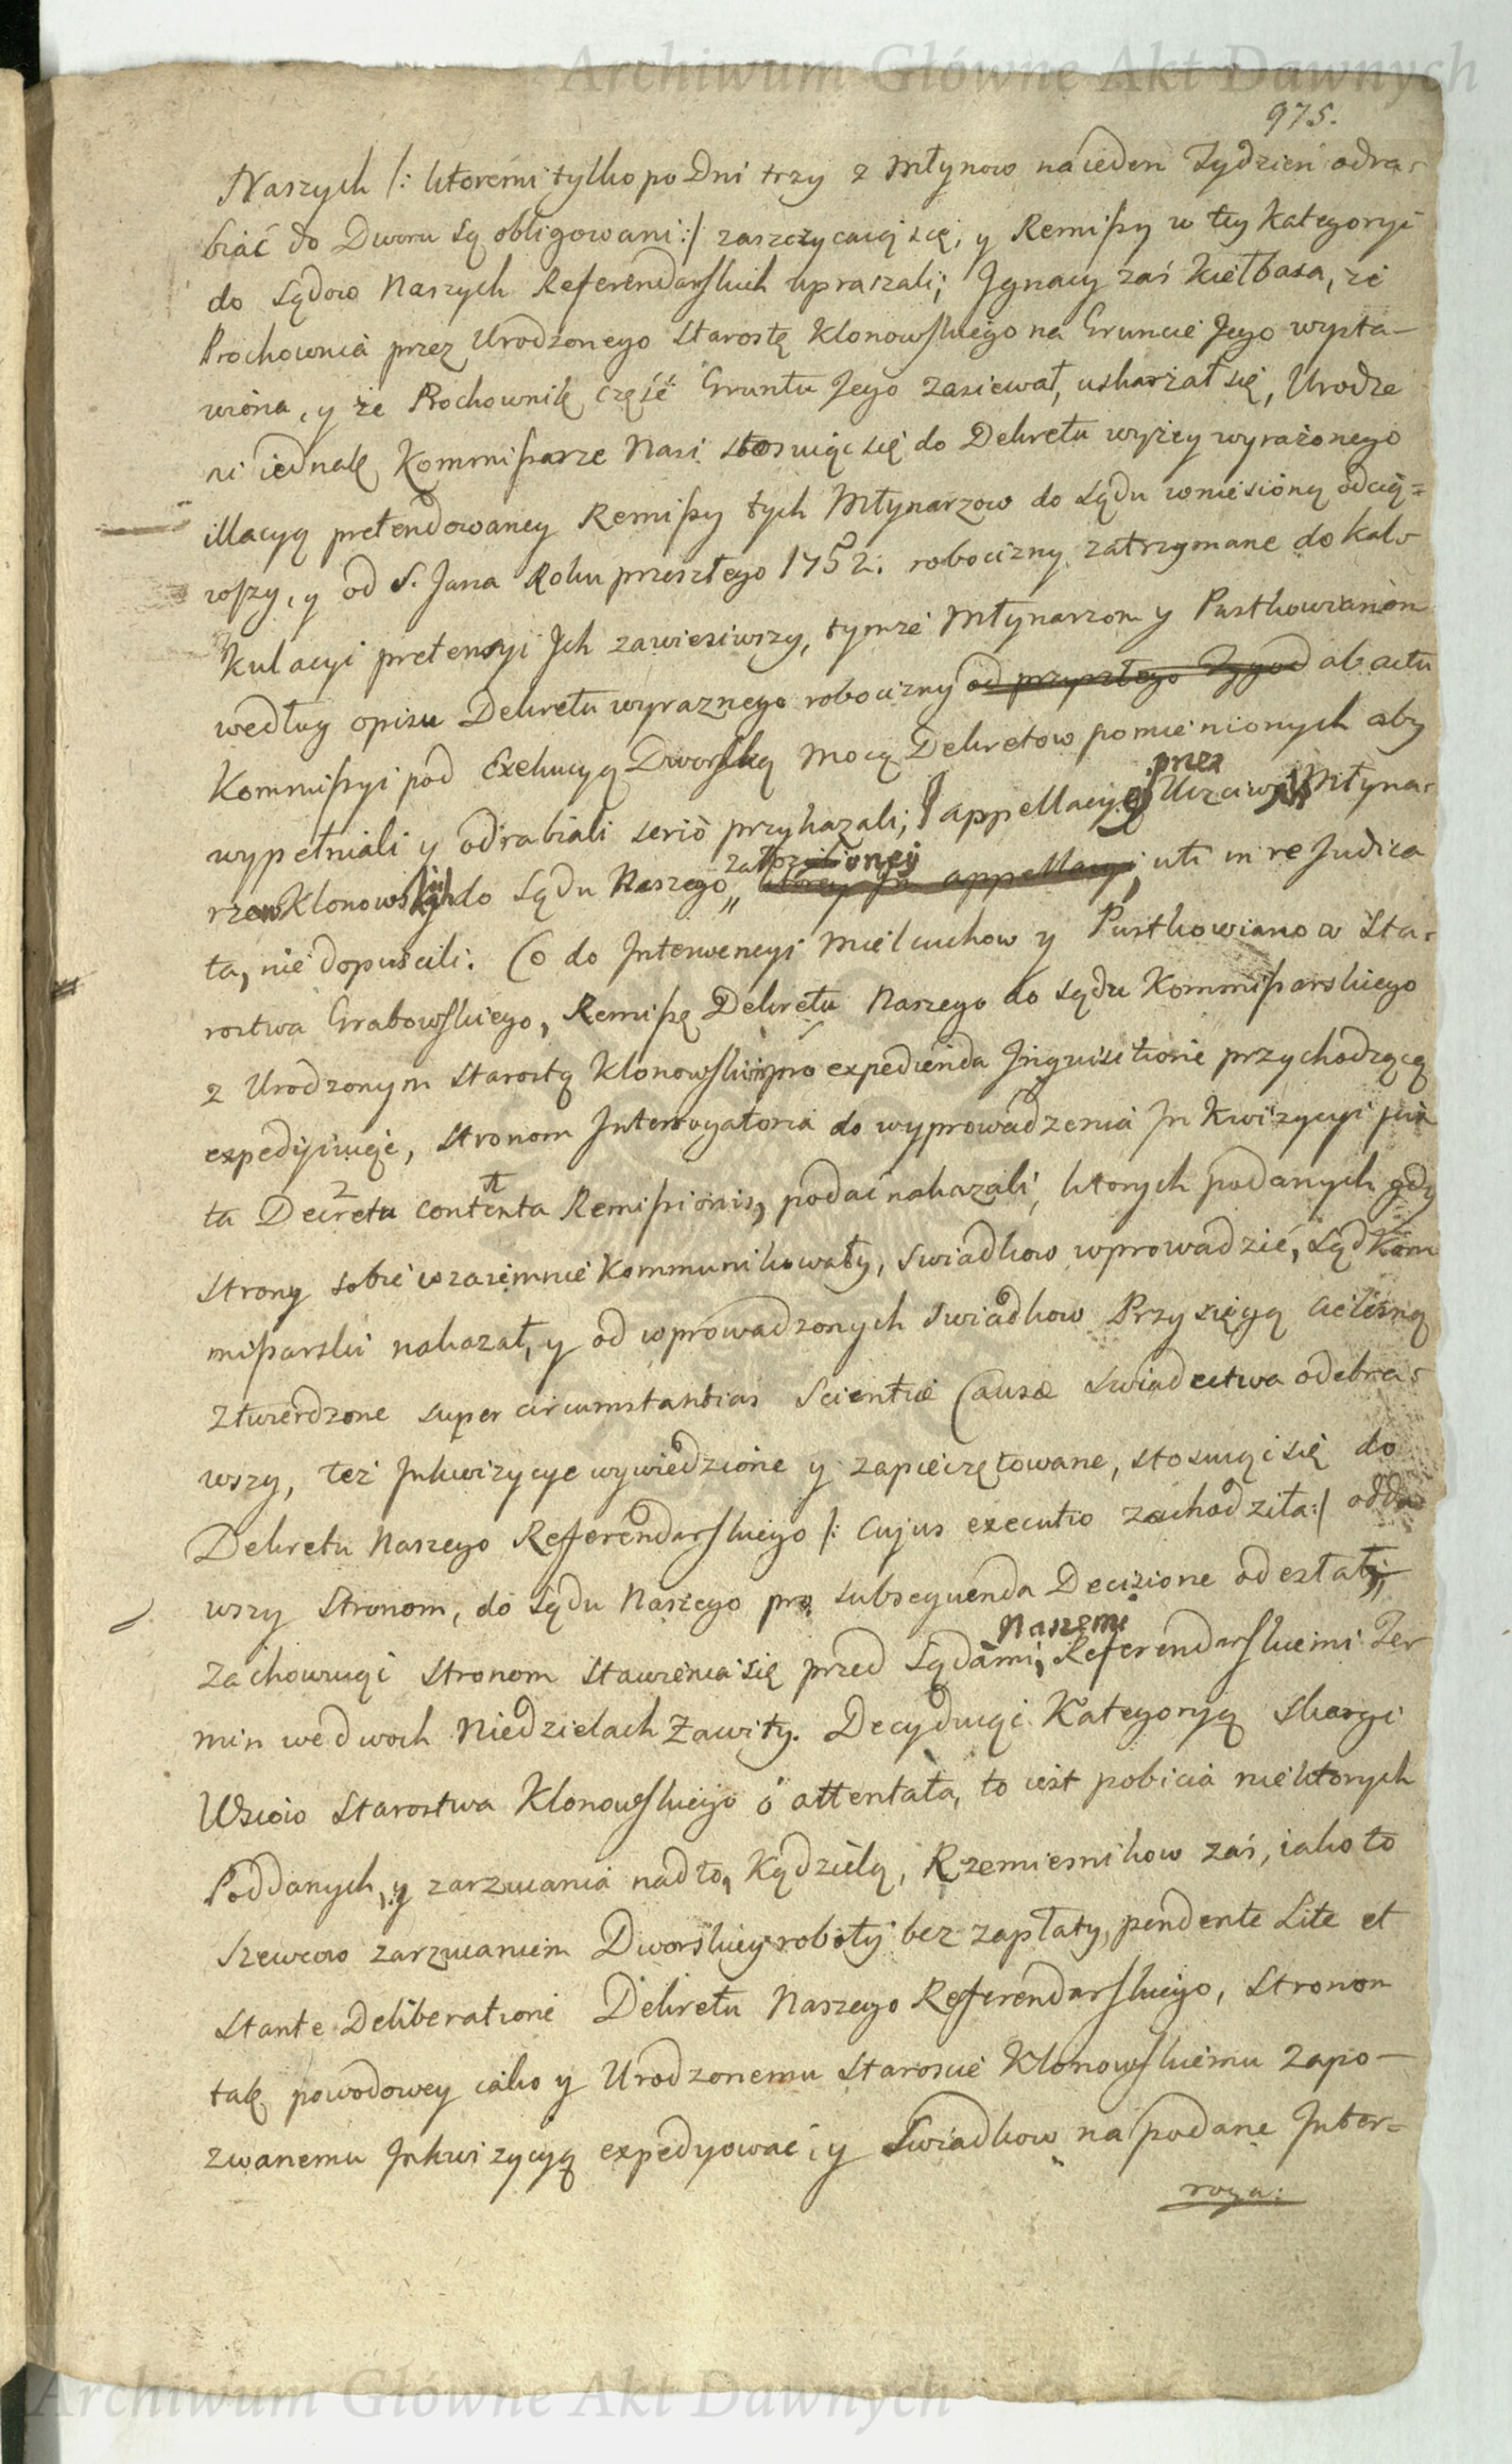 Archiwum Główne Akt Dawnych
975.
Naszych /: ktoremi tylko po Dni trzy z Młynow na ieden Tydzień odra-
biać do Dworu są obligowani :/ zaszczycaiąc się, y Remissy w tey Kategoryi
do Sądow Naszych Referendarskich upraszali; Ignacy zaś Kiełbasa, że
Prochownia przez Urodzonego Starostę Klonowskiego na Gruncie Jego wysta-
wiona, y że Prochownik część Gruntu Jego zasiewał, uskarżał się, Urodze
ni iednak Kommissarze Nasi stosuiąc się do Dekretu wyżey wyrażonego
illacyą pretendowaney Remissy tych Młynarzow do Sądu wniesioną odcią-
wszy, y od S. Jana Roku przeszłego 1752. robocizny zatrzymane do kal-
kulacyi pretensyi Jch zawiesiwszy, tymże Młynarzom y Pustkowianom
według opisu Dekretu wyraznego robocizny od przyszłego Tygod ab actu
Kommissyi pod Exekucyą Dworską mocą Dekretow pomienionych aby
wypełniali y odrabiali seriò przykazali; appellacyi przez Uczciwych Młyna-
rzow Klonowskich do Sądu Naszego założoney ktorey in appellacyi, uti in re Judica
ta, nie dopuscili. Co do Interwencyi Mielcuchow y Pustkowianow Sta-
rostwa Grabowskiego, Remissę Dekretu Naszego do Sądu Kommissarskiego
z Urodzonym Starostą Klonowskim pro expedienda Inquisitione przychodzącą
expedyiuiąc, Stronom Interrogatoria do wyprowadzenia Jnkwizycyi jux
ta Decretu contenta Remissionis, podać nakazali, ktorych podanych gdy
Strony sobie wzaiemnie kommunikowały, Swiadkow wprowadzić, Sąd Kom
missarski nakazał, y od wprowadzonych Swiadkow Przysięgą cielesną
ztwierdzone super circumstantias Scientiæ Causæ swiadectwa odebra-
wszy, też Jnkwizycye wywiedzione y zapieczętowane, stosuiąc się do
Dekretu Naszego Referendarskiego /: cujus executio zachodziła :/ odda
wszy Stronom, do Sądu Naszego pro subsequenda Decisione odesłali,
Zachowuiąc Stronom stawienia się przed Sądami Naszemi Referendarskiemi Ter
min we dwoch Niedzielach Zawity. Decyduiąc Kategoryą skargi
Wsiow Starostwa Klonowskiego o attentata, to iest pobicia niektorych
Poddanych, y zarzucania nad to, Kądzielą, Rzemiesnikow zaś, iako to
Szewcow zarzucaniem Dworskiey roboty bez zapłaty, pendente Lite et
Stante Deliberatione Dekretu Naszego Referendarskiego, Stronom
tak powodowey iako y Urodzonemu Staroscie Klonowskiemu Zapo-
zwanemu Jnkwizycyą expedyować, y Swiadkow na podane Inter-
roga:
Archiwum Główne Akt Dawnych